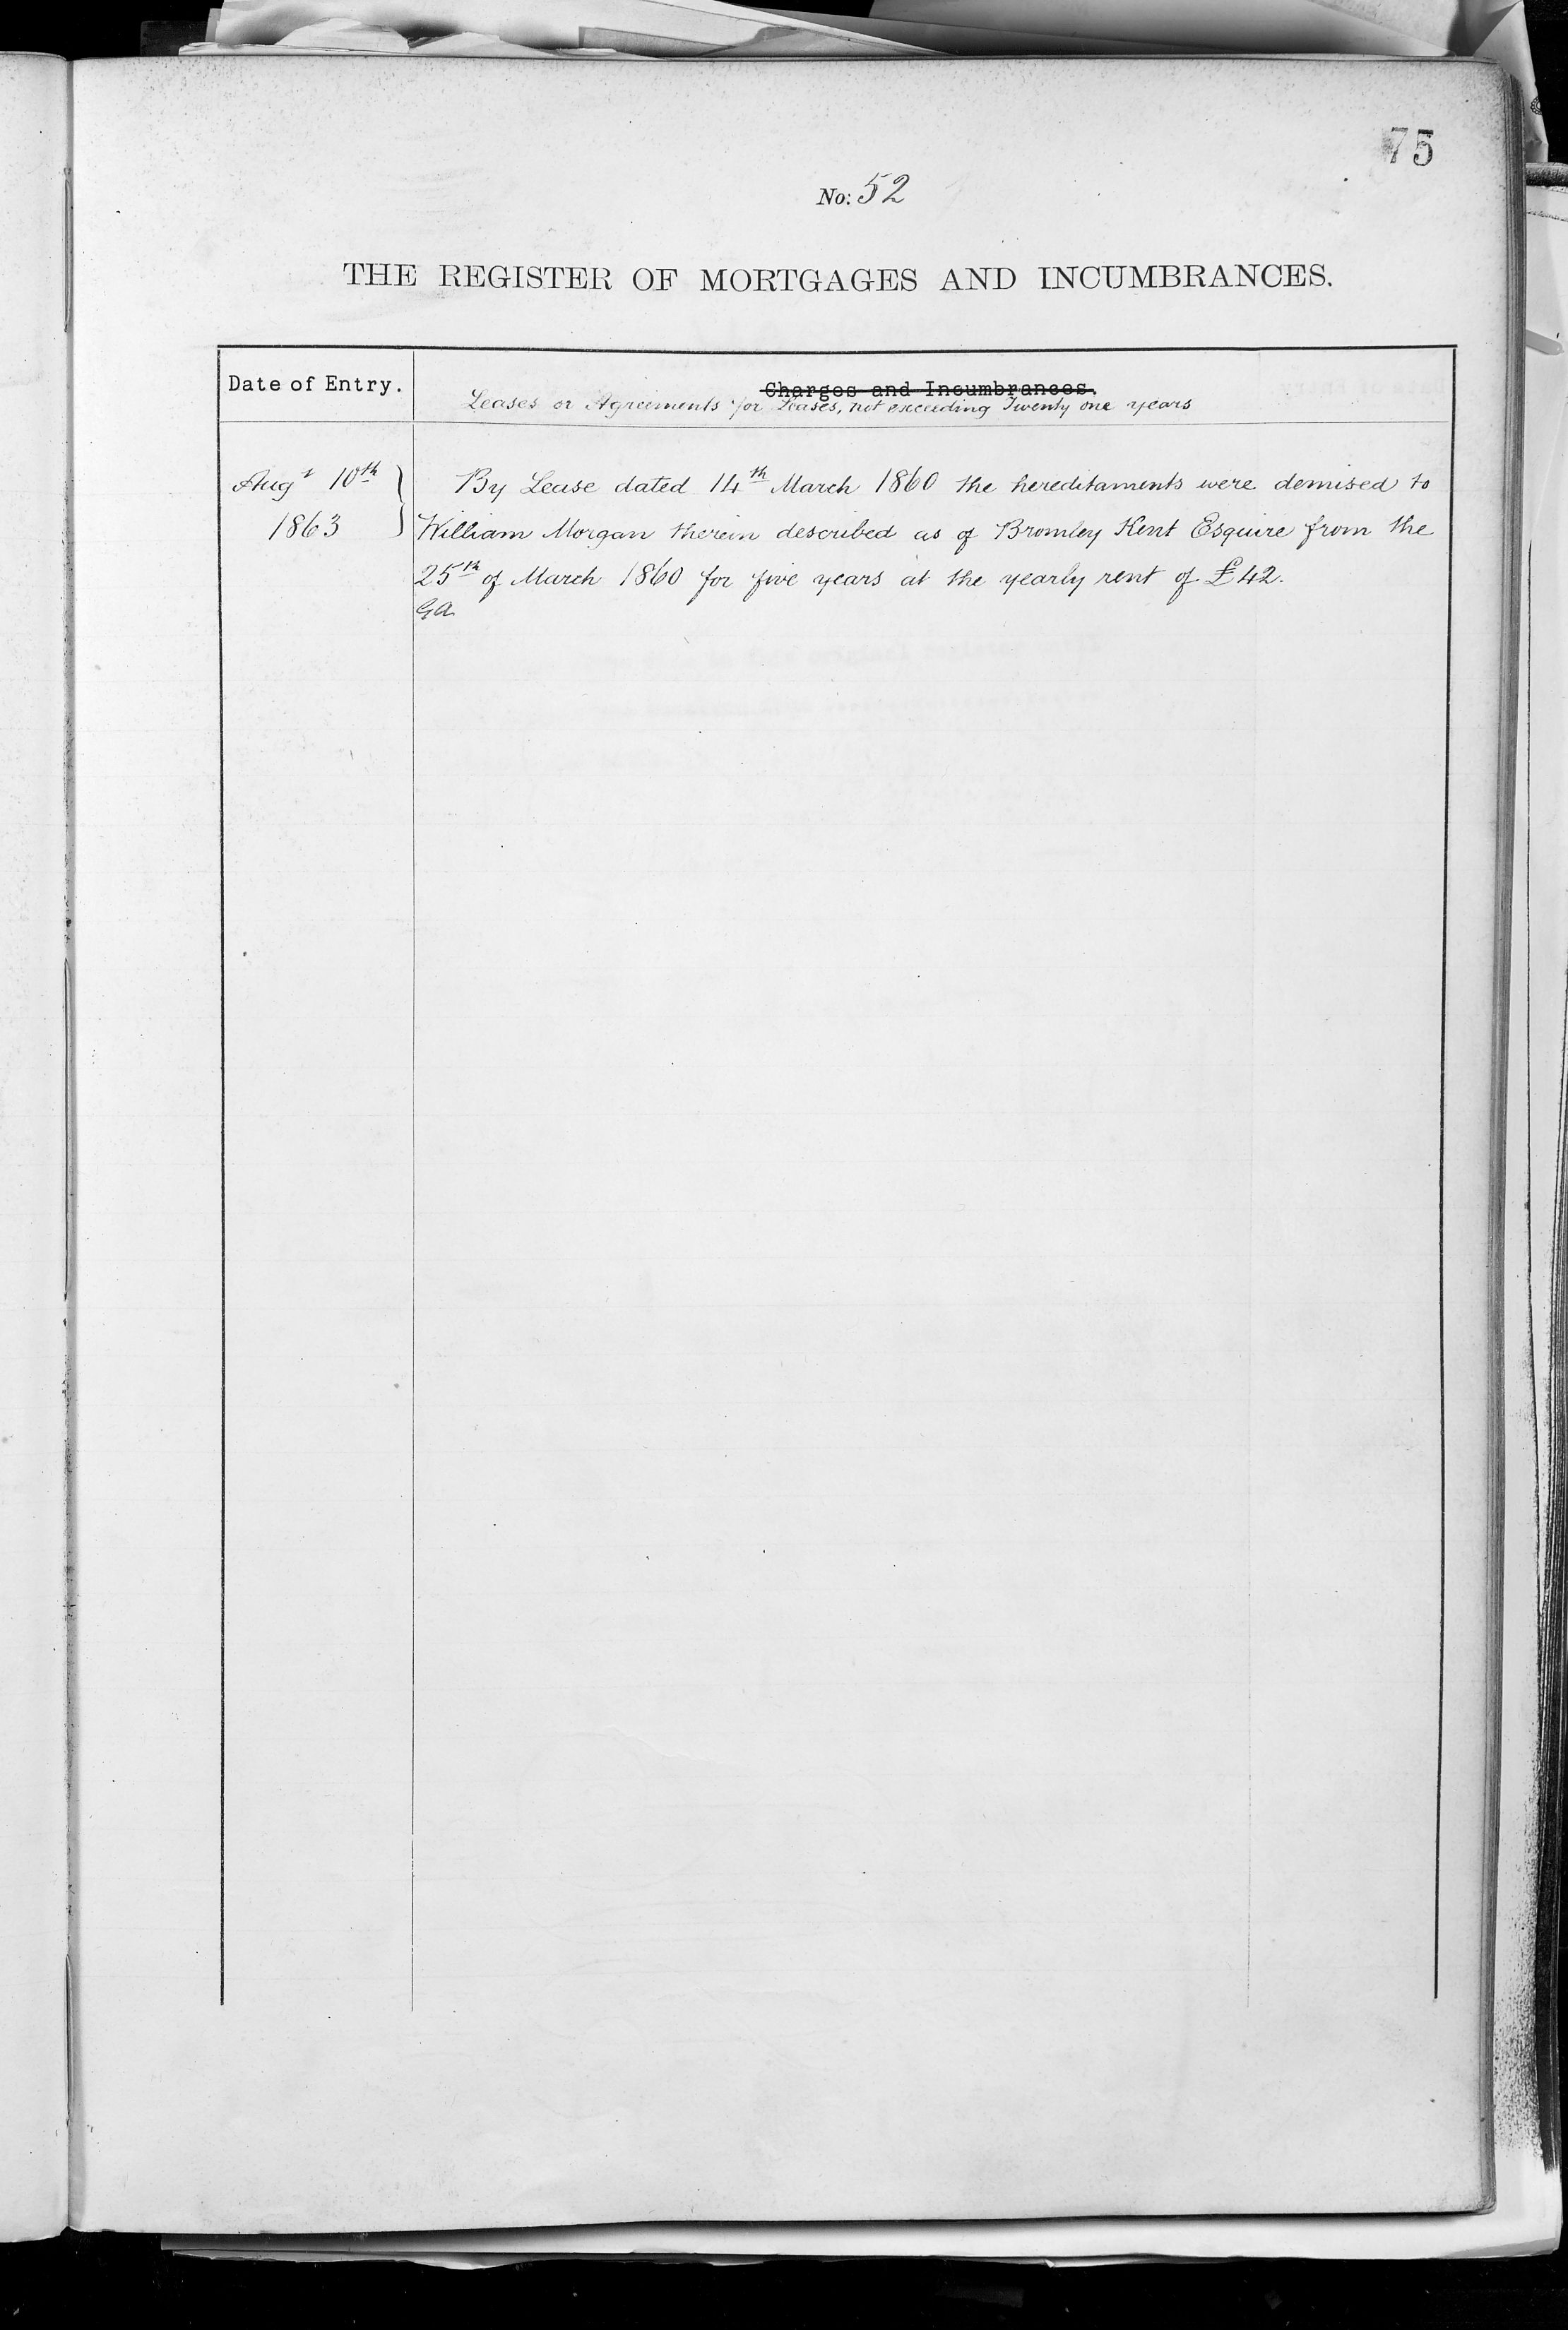 75
No: 52
THE REGISTER OF MORTGAGES AND INCUMBRANCES.
Date of Entry.
Charges and Incumbrances.
Leases or Agreements for Leases, not exceeding Twenty one years
Augt 10th
1863
By Lease dated 14th March 1860 the hereditaments were demised to
William Morgan therein described as of Bromley Kent Esquire from the
25th of March 1860 for five years at the yearly rent of £42.
GA